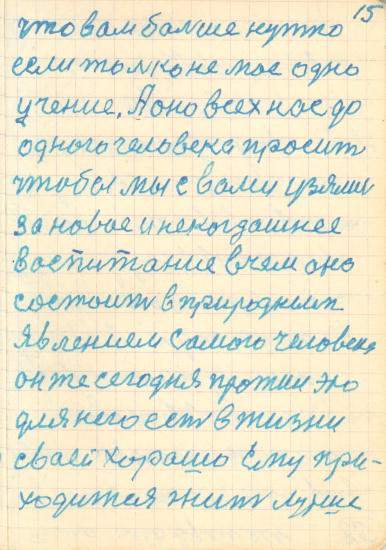 15
что вам болше нужно
если толко не мое одно
учение. А оно всех нас до
одного человека просит
чтобы мы с вами взялис
за новое и некогдашнее
воспитание в чем оно
состоит в природным
явлением самого человека
он же сегодня прожил это
для него ест в жизни
своей хорошо Ему при-
ходится жит лучше